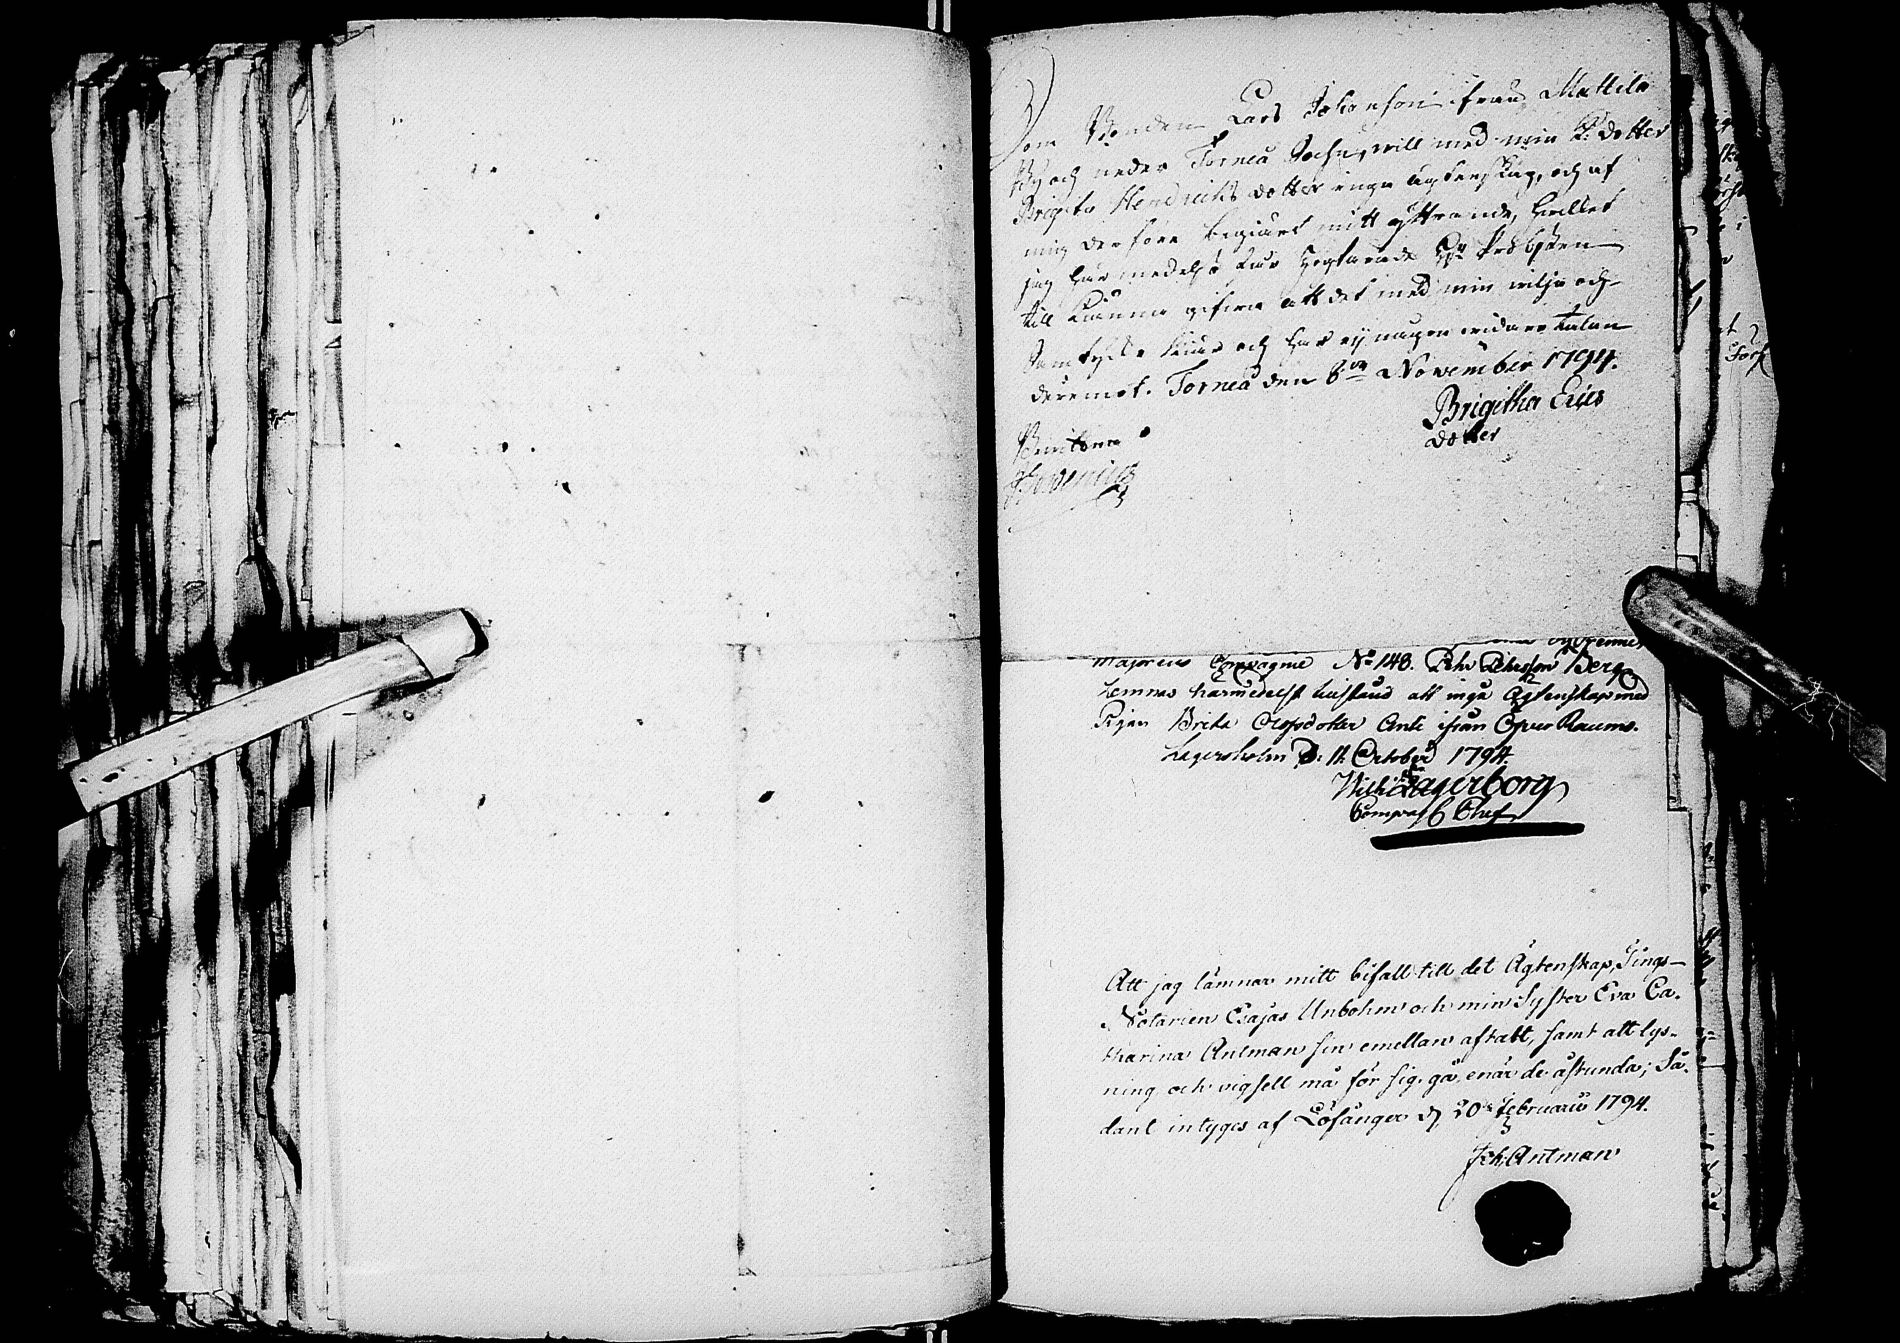 Som Bonden Lars Johanson ifrån Mattila
By och neder Torneå Sochn, will med min K: dotter
Brigita Hendrichs dotter inga ägtenskap, och af
mig derföre begiärt mitt yttrande, hvilket
jag här medelst har Högärade Hr Probsten
till känna gifva att det med min vilja och
samtycke skier och har ej någon vidare talan
deremot. Torneå den 6te November 1794.
Brigitha Erics
dotter
Bevitnar
Majorens Compagnie No 148. Pehr Pehrsson Berg
Lemnas härmedelst tilstånd att ingå Ägtenskap med
Pigan Brita Olofsdotter Anti ifrån Öfver Raumo.
Lagersholm D: 11 October 1794.
Wilh: Lagerborg
Comp: Chef
Att jag lämnar mitt bifall till det Ägtenskap, Tings-
Notarien Esajas Unbohm och min Syster Eva Ca-
tharina Antman sin emellan aftalt, samt att lys-
ning och vigsell må för sig gå, enär de åstunda; Så-
dant intyges af Löfånger d. 20 Februarii 1794.
Joh. Antman